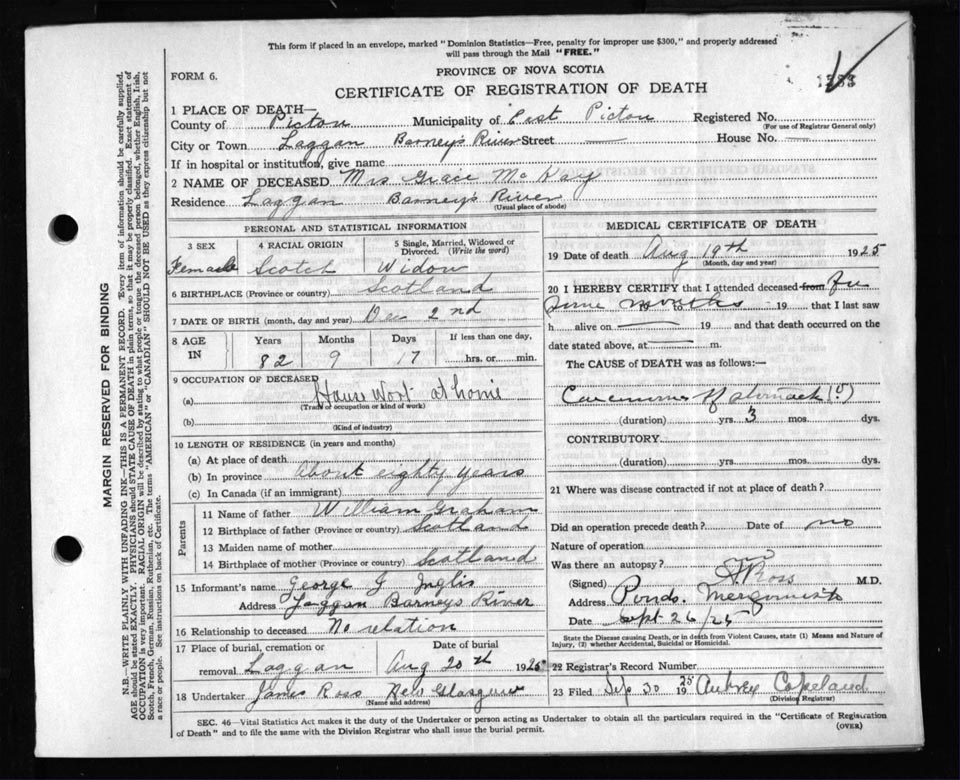 This form if placed in an envelope, marked "Dominion Statistics—Free, penalty for improper use $300," and properly addressed
will pass through the Mail "FREE."
FORM 6.
PROVINCE OF NOVA SCOTIA
CERTIFICATE OF REGISTRATION OF DEATH
1 PLACE OF DEATH—
County of Pictou Municipality of East Pictou Registered No.
(For use of Registrar General only)
City or Town Laggan Barneys River Street — House No. —
If in hospital or institution, give name
2 NAME OF DECEASED Mrs Grace McKay
Residence Laggan Barney's River
(Usual place of abode)
PERSONAL AND STATISTICAL INFORMATION
3 SEX 4 RACIAL ORIGIN 5 Single, Married, Widowed or Divorced. (Write the word)
Female Scotch Widow
6 BIRTHPLACE (Province or country) Scotland
7 DATE OF BIRTH (month, day and year) Dec 2nd
8 AGE IN Years Months Days If less than one day,
82 9 17 hrs. or min.
9 OCCUPATION OF DECEASED
(a) House Work at home
(Trade or occupation or kind of work)
(b)
(Kind of industry)
10 LENGTH OF RESIDENCE (in years and months)
(a) At place of death
(b) In province About eighty years
(c) In Canada (if an immigrant)
Parents
11 Name of father William Graham
12 Birthplace of father (Province or country) Scotland
13 Maiden name of mother
14 Birthplace of mother (Province or country) Scotland
15 Informant's name George G Inglis
Address Laggan Barneys River
16 Relationship to deceased No relation
17 Place of burial, cremation or removal Date of burial
Laggan Aug 20th 1925
18 Undertaker James Ross New Glasgow
(Name and address)
MEDICAL CERTIFICATE OF DEATH
19 Date of death Aug 19th 1925
(Month, day and year)
20 I HEREBY CERTIFY that I attended deceased from for
some months 19 that I last saw
h alive on — 19 and that death occurred on the
date stated above, at — m.
The CAUSE of DEATH was as follows:—
Carcinoma of stomach (?)
(duration) yrs. 3 mos. dys.
CONTRIBUTORY
(duration) yrs. mos. dys.
21 Where was disease contracted if not at place of death?
Did an operation precede death? Date of no
Nature of operation
Was there an autopsy?
(Signed) Ross M.D.
Address
Date Sept 26/25
State the Disease causing Death, or in death from Violent Causes, state (1) Means and Nature of
Injury, (2) whether Accidental, Suicidal or Homicidal.
22 Registrar's Record Number
23 Filed Sep 30 1925 Aubrey Copeland
(Division Registrar)
SEC. 46—Vital Statistics Act makes it the duty of the Undertaker or person acting as Undertaker to obtain all the particulars required in the "Certificate of Registration
of Death" and to file the same with the Division Registrar who shall issue the burial permit.
(OVER)
MARGIN RESERVED FOR BINDING
N.B.—WRITE PLAINLY WITH UNFADING INK—THIS IS A PERMANENT RECORD. Every item of information should be carefully supplied.
AGE should be stated EXACTLY. PHYSICIANS should STATE CAUSE OF DEATH in plain terms, so that it may be properly classified. Exact statement of
OCCUPATION is very important. RACIAL ORIGIN will be described by stating to what people or tongue the deceased person belonged, whether English, Irish,
Scotch, French, German, Russian, Ruthenian, etc. The terms "AMERICAN" or "CANADIAN" SHOULD NOT BE USED as they express citizenship but not
a race or people. See instructions on back of Certificate.